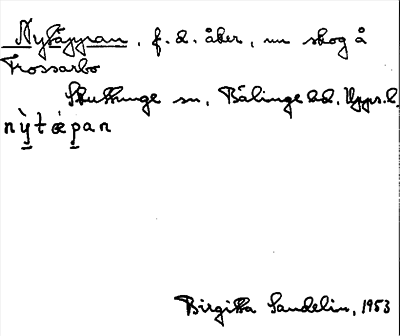 Nytäppan, f.d. åker, nu skog å
Trossarbo
Skuttunge sn, Bälinge hd, Upps.l.
nỳtǽpan
Birgitta Sandelin, 1953